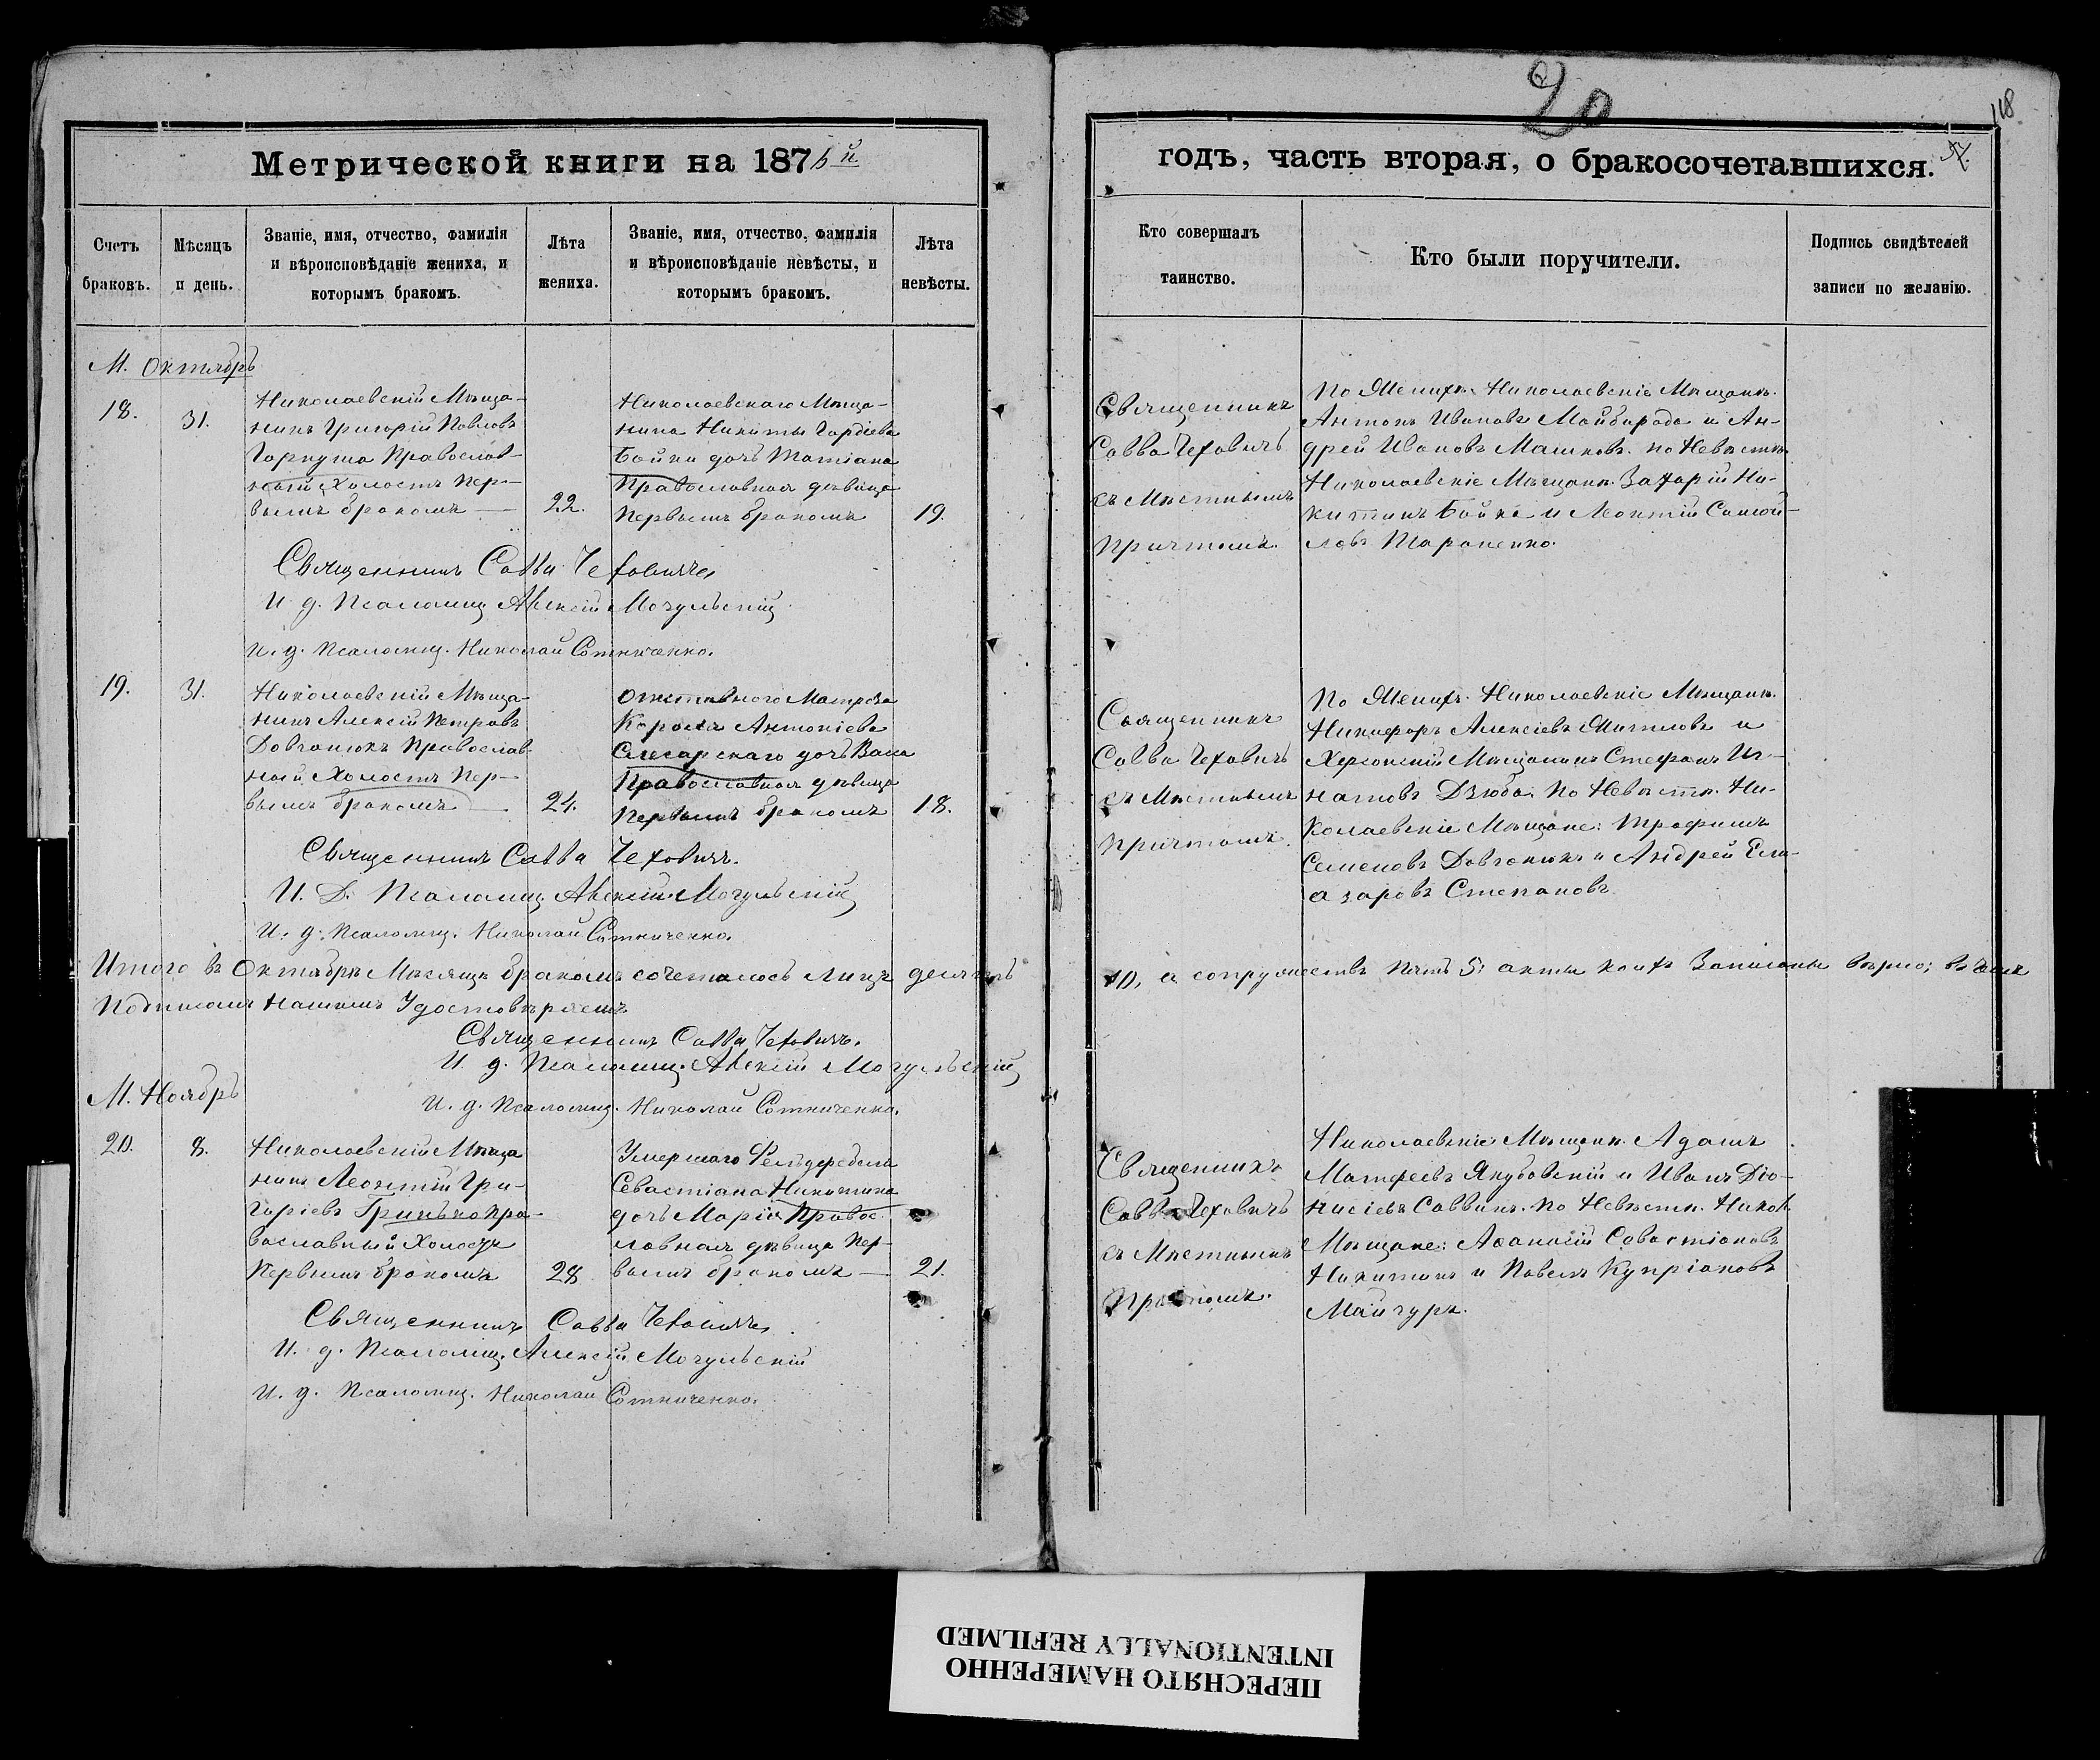 20
118
Метрической книги на 187
годъ, часть вторая, о бракосочетавшихся.
Счетъ браковъ.
Мѣсяцъ и день.
Званіе, имя, отчество, фамилія
и вѣроисповѣданіе жениха, и
которымъ бракомъ.
Лѣта жениха.
Званіе, имя, отчество, фамилія
и вѣроисповѣданіе невѣсты, и
которымъ бракомъ.
Лѣта невѣсты.
Кто совершалъ
таинство.
Кто были поручители.
Подпись свидѣтелей
записи по желанію.
М. Октябрь
18.
31.
Николаевскій Мѣща-
нинъ Григорій Павловъ
Гаркуша Православ-
ный Холостъ Пер-
вымъ бракомъ
22.
Николаевскаго Мѣща-
нина Никиты Гордіева
Бойки дочь Татіана
Православная дѣвица
Первымъ бракомъ
19.
Священникъ
Савва Чеховичъ
съ Мѣстнымъ
Причтомъ.
По Женихѣ: Николаевскіе Мѣщане.
Антонъ Ивановъ Майборода и Ан-
дрей Ивановъ Машковъ. по Невѣстѣ.
Николаевскіе Мѣщане. Захарій Ни-
китинъ Бойко и Леонтій Самой-
ловъ Тараненко.
Священникъ Савва Чеховичъ
И. д. Псаломщ. Алексій Могульскій
И. д. Псаломщ. Николай Сотниченко.
19.
31.
Николаевскій Мѣща-
нинъ Алексій Петровъ
Довганюкъ Православ-
ный Холостъ Пер-
вымъ бракомъ
24.
Отставного Матроза
Карола Антоніева
Слесарскаго дочь
Православная дѣвица
Первымъ бракомъ
18.
Священникъ
Савва Чеховичъ
съ Мѣстнымъ
Причтомъ.
По Женихѣ. Николаевскіе Мѣщане.
Никифоръ Алексіевъ и
Херсонскій Мѣщанинъ Стефанъ Иг-
натовъ Дзюба. По Невѣстѣ. Ни-
колаевскіе Мѣщане: Трофимъ
Семеновъ Довганюкъ и Андрей Ели-
азаровъ Степановъ.
Священникъ Савва Чеховичъ.
И. Д. Псаломщ. Алексій Могульскій
И. д. Псаломщ. Николай Сотниченко.
Итого въ Октябрѣ Мѣсяцѣ бракомъ сочеталось лицъ десять 10, а супружествъ пять 5. акты коихъ записаны вѣрно; въ чемъ
Подписомъ нашимъ Удостовѣряемъ
Священникъ Савва Чеховичъ.
И. д. Псаломщ. Алексій Могульскій
И. д. Псаломщ. Николай Сотниченко.
М. Ноябрь
20.
8.
Николаевскій Мѣща
нинъ Леонтій Гри-
горіевъ Гринько Пра-
вославный Холостъ
Первымъ бракомъ
28
Умершаго Фельдфебеля
Севастіана Никитина
дочь Марія Правос-
лавная дѣвица Пер-
вымъ бракомъ
21.
Священникъ
Савва Чеховичъ
съ Мѣстнымъ
Причтомъ.
Николаевскіе Мѣщане. Адамъ
Матфеевъ Якубовскій и Иванъ Діо-
нисіевъ Саввинъ. по Невѣстѣ. Никол.
Мѣщане: Афанасій Севастіановъ
Никитинъ и Павелъ Купріановъ
Майгуръ.
Священникъ Савва Чеховичъ
И. д. Псаломщ. Алексій Могульскій
И. д. Псаломщ. Николай Сотниченко.
ПЕРЕСНЯТО НАМЕРЕННО
INTENTIONALLY REFILMED